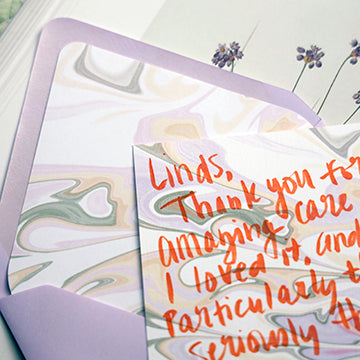 Linds,
Thank you for
amazing care
I loved it, and
Particularly th
seriously th